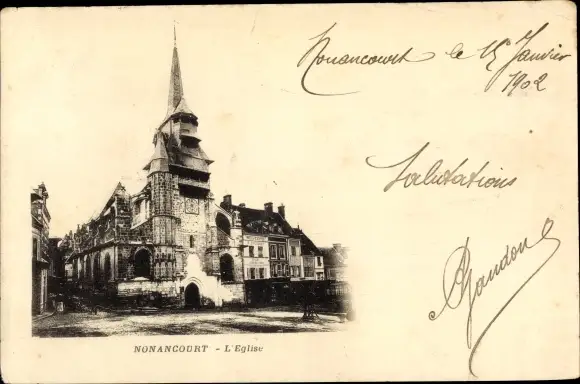 Nonancourt le 15 Janvier
1902
Salutations
NONANCOURT - L'Eglise